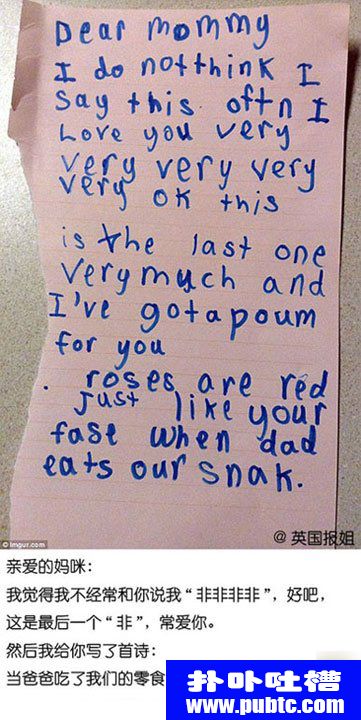 Dear mommy
I do notthink I
say this oftn I
Love you very
very very very
very ok this
is the last one
very much and
I've gotapoum
for you
. roses are red
just like your
fase when dad
eats our snak.
© Imgur.com
@ 英国报姐
亲爱的妈咪：
我觉得我不经常和你说我“非非非非”，好吧，
这是最后一个“非”，常爱你。
然后我给你写了首诗：
当爸爸吃了我们的零食
扑卟吐槽
www.pubtc.com